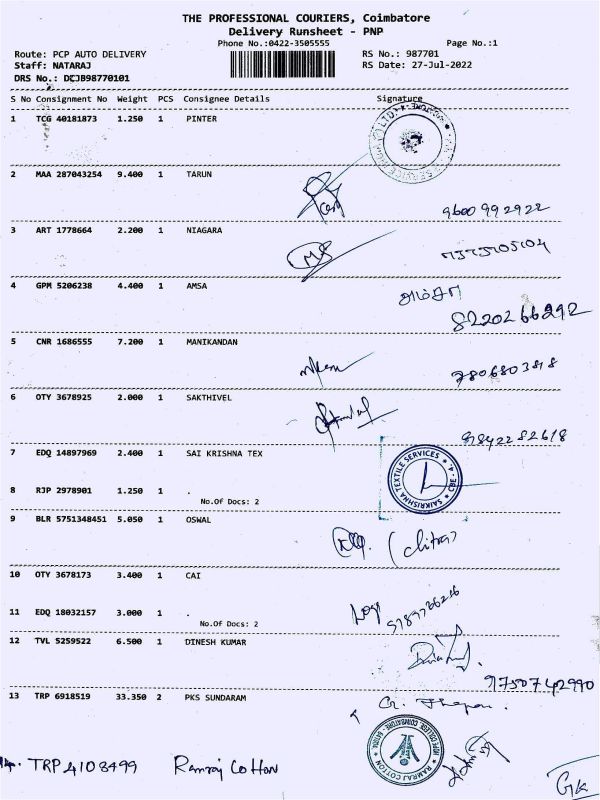 THE PROFESSIONAL COURIERS, Coimbatore
Delivery Runsheet - PNP
Phone No.:0422-3505555
Page No.:1
Route: PCP AUTO DELIVERY
RS No.: 987701
Staff: NATARAJ
RS Date: 27-Jul-2022
DRS No.: DCJB98770101
S No Consignment No Weight PCS Consignee Details Signature
1 TCG 40181873 1.250 1 PINTER
2 MAA 287043254 9.400 1 TARUN
9600992922
3 ART 1778664 2.200 1 NIAGARA
4 GPM 5206238 4.400 1 AMSA
அம்சா
8220266292
5 CNR 1686555 7.200 1 MANIKANDAN
7806803818
6 OTY 3678925 2.000 1 SAKTHIVEL
9842282618
7 EDQ 14897969 2.400 1 SAI KRISHNA TEX
SAIKRISHNA TEXTILE SERVICES ★ CBE - 4. ★
8 RJP 2978901 1.250 1 .
No.Of Docs: 2
9 BLR 5751348451 5.050 1 OSWAL
(Chitra)
10 OTY 3678173 3.400 1 CAI
11 EDQ 18032157 3.000 1 .
No.Of Docs: 2
9789766216
12 TVL 5259522 6.500 1 DINESH KUMAR
9750742990
13 TRP 6918519 33.350 2 PKS SUNDARAM
RAMRAJ COTTON
14. TRP 4108499 Ramraj Cotton